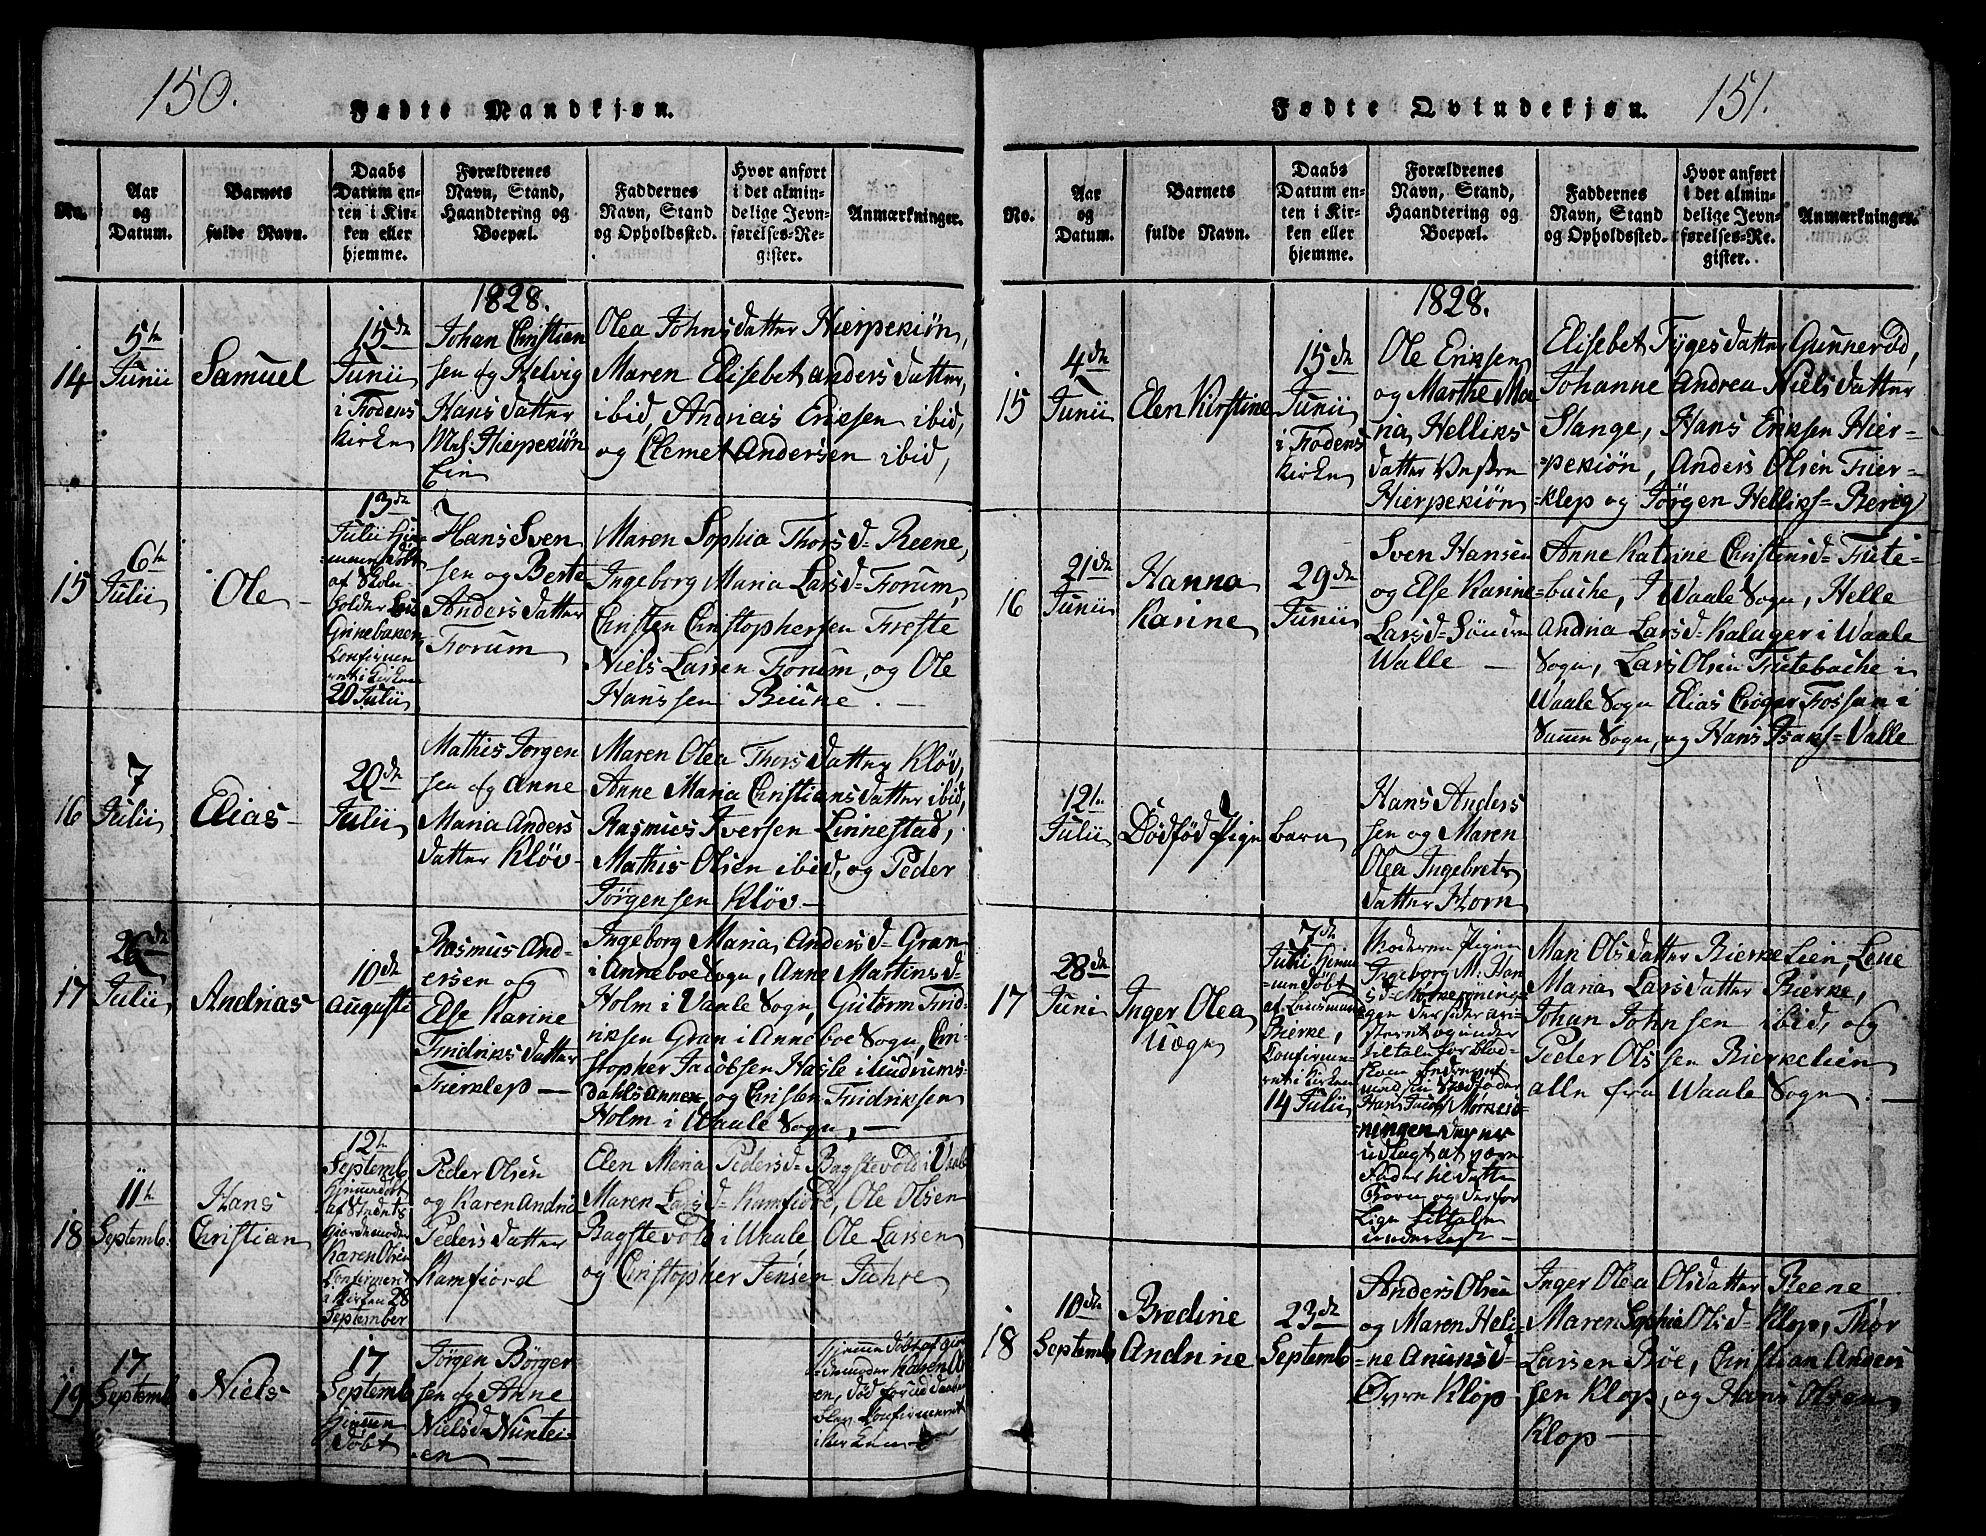 150.
Fødte Mandkjøn.
No.
Aar
og
Datum.
Barnets
fulde Navn.
Daabs
Datum en-
ten i Kir-
ken eller
hjemme.
Forældrenes
Navn, Stand,
Haandtering og
Boepæl.
Faddernes
Navn, Stand
og Opholdssted.
Hvor anført
i det almin-
delige Jevn-
førelses-Re-
gister.
Anmærkninger.
1828.
14
5te
Junii
Samuel
15de
Junii
i Fodens
Kirke
Johan Christian
sen og Helvig
Hans datter
Hierpekiøn
Eie
Olea Johns datter Hierpekiøn,
Maren Elisebet anders datter,
ibid, Andreas Eriksen ibid,
og Clemet Andersen ibid,
15
6te
Julii
Ole
13de
Julii
af Skole-
holder
Confirme
ret i Kirken
20 Julii
Hans Sven
sen og Berte
Anders datter
Forum
Maren Sophia Thors d= Reene,
Ingeborg Maria Lars d= Forum,
Christen Christophersen Freste
Niels Larsen Forum, og Ole
Hanssen
16
7
Julii
Elias
20de
Julii
Mathis Jørgen
sen og Anne
Maria Anders
datter Kløv
Maren Olea Thors datter Kløv,
Anne Maria Christians datter ibid,
Rasmus Iversen Linnestad,
Mathis Olsen ibid, og Peder
Jørgensen Kløv
17
26de
Julii
Andreas
10de
Augusti
Rasmus And-
ersen og
Else Karine
Fredriks datter
Ingeborg Maria Anders d= Gran
i Anneboe Sogn, Anne Martins d=
Holm i Vaale Sogn, Gutorm Fred-
riksen Gran i Anneboe Sogn, Chri-
stopher Jacobsen Hasle i Undrums-
dahls Annex, og Christen Fredriksen
Holm i Vaale Sogn,
18
11te
Septemb.
Hans
Christian
12te
Septemb
Karen Olsen
Confirmeret
i Kirken 28
September
Peder Olsen
og Karen Andrea
Peders datter
Ramfiord
Elen Maria Peders d= Bagstevold i Vaale
Maren Lars d= Ramfiord, Ole Olsen
Bagstevold i Vaale, Ole Larsen
og Christopher Jensen
19
17
Septemb
Niels
17
Septemb
hjemme
døbt
Jørgen Børger-
sen og Anne
Niels d=
hjemme døbt af gior
demoder Karen Ol
sen, død forud Daaben
blev Confirmeret
i Kirken
151.
Fødte Qvindekjøn.
No.
Aar
og
Datum.
Barnets
fulde Navn.
Daabs
Datum en-
ten i Kir-
ken eller
hjemme.
Forældrenes
Navn, Stand,
Haandtering og
Boepæl.
Faddernes
Navn, Stand
og Opholdssted.
Hvor anført
i det almin-
delige Jevn-
førelses-Re-
gister.
Anmærkninger.
1828.
15
4de
Junii
Elen Kirstine
15de
Junii
i Fodens
Kirke
Ole Eriksen
og Marthe Ma
ria Helliks
datter Vestre
Hierpekiøn
Elisebet Tyges datter Gunnerød,
Johanne Andrea Niels datter
Slange, Hans Eriksen Hier-
=pekiøn, Anders Olsen Frier-
=klep og Jørgen Helliks=
16
21de
Junii
Hanna
Karine
29de
Junii
Sven Hansen
og Else Karine
Lars d= Søndre
Walle
Anne Katrine Christens d=
i Waale Sogn, Helle
Andrea Lars d= i Waale
Sogn, Lars Olsen i
Waale Sogn Elias i
Samme Sogn, og Hans Valle
12te
Julii
Dødfød Pige
barn
Hans Anders
sen og Maren
Olea Ingebrets
datter Horn
17
28de
Juni
Inger Olea
Uægte
7de
Julii
døbt
af Lensmand
Bierke,
Confirme-
ret i Kirken
14 Julii
Moderen Pigen
Ingeborg M: Han
s d=
med sin Stedfader
udlagt at være
Fader til dette
Barn og derfor
lige tiltale
underkast
Mari Ols datter Bierkelien, Lene
Maria Lars datter Bierke,
Johan Johnsen ibid, og
Peder Olssen Bierkelien
alle fra Waale Sogn.
18
10de
Septemb
Bredine
Andrine
23de
Septemb
Anders Olsen
og Maren Heli-
ne
Øvre Klop
Inger Olea Ols datter Reene
Maren Sophia Ols d= Klop, Thor
Larsen Bøe, Christian Anders
sen Klop, og Hans Olsen
Klop